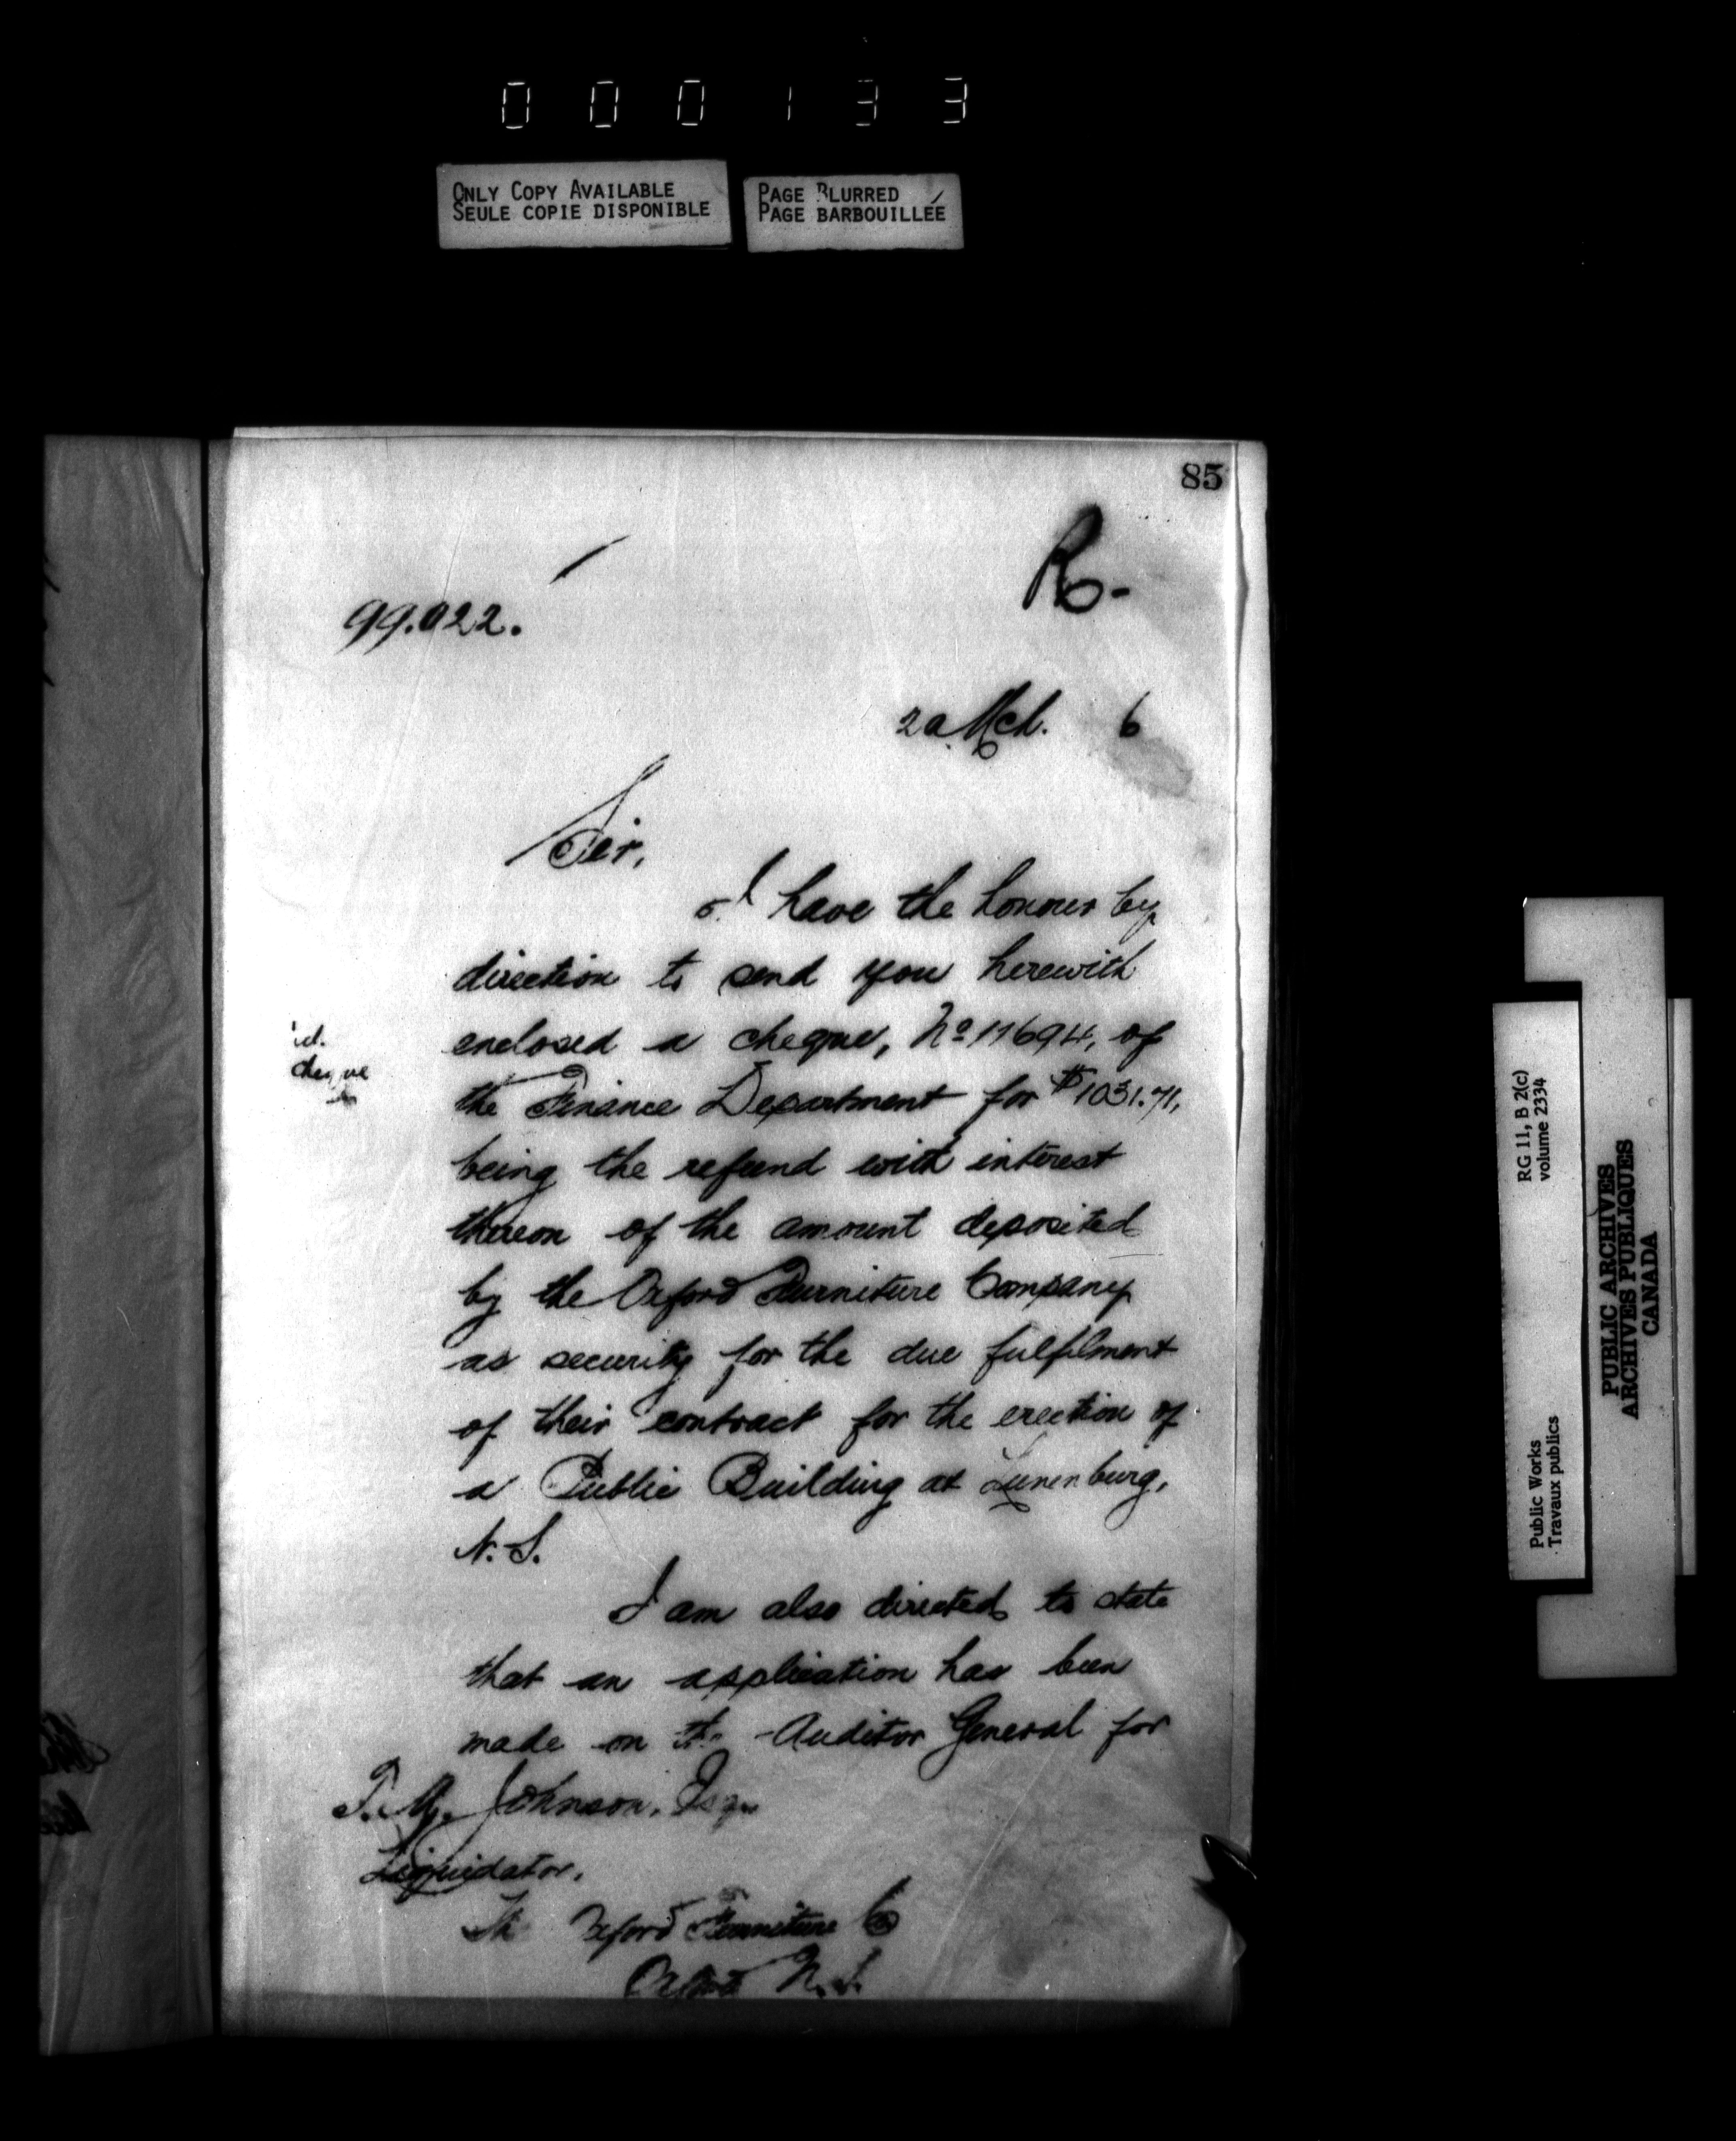 000133
ONLY COPY AVAILABLE
SEULE COPIE DISPONIBLE
PAGE BLURRED
PAGE BARBOUILLÉE
85
99.022.
Mch. 6
Sir,
I have the honour by
direction to send you herewith
enclosed a cheque, No 11694, of
cheque
the Finance Department for $1031.71,
being the refund with interest
thereon of the amount deposited
by the Oxford Furniture Company
as security for the due fulfilment
of their contract for the erection of
a Public Building at Lunenburg,
N.S.
I am also directed to state
that an application has been
made on the Auditor General for
Johnson, Esqr
Liquidator,
The Oxford Furniture Co
Oxford N.S.
RG 11, B 2(c)
volume 2334
Public Works
Travaux publics
PUBLIC ARCHIVES
ARCHIVES PUBLIQUES
CANADA